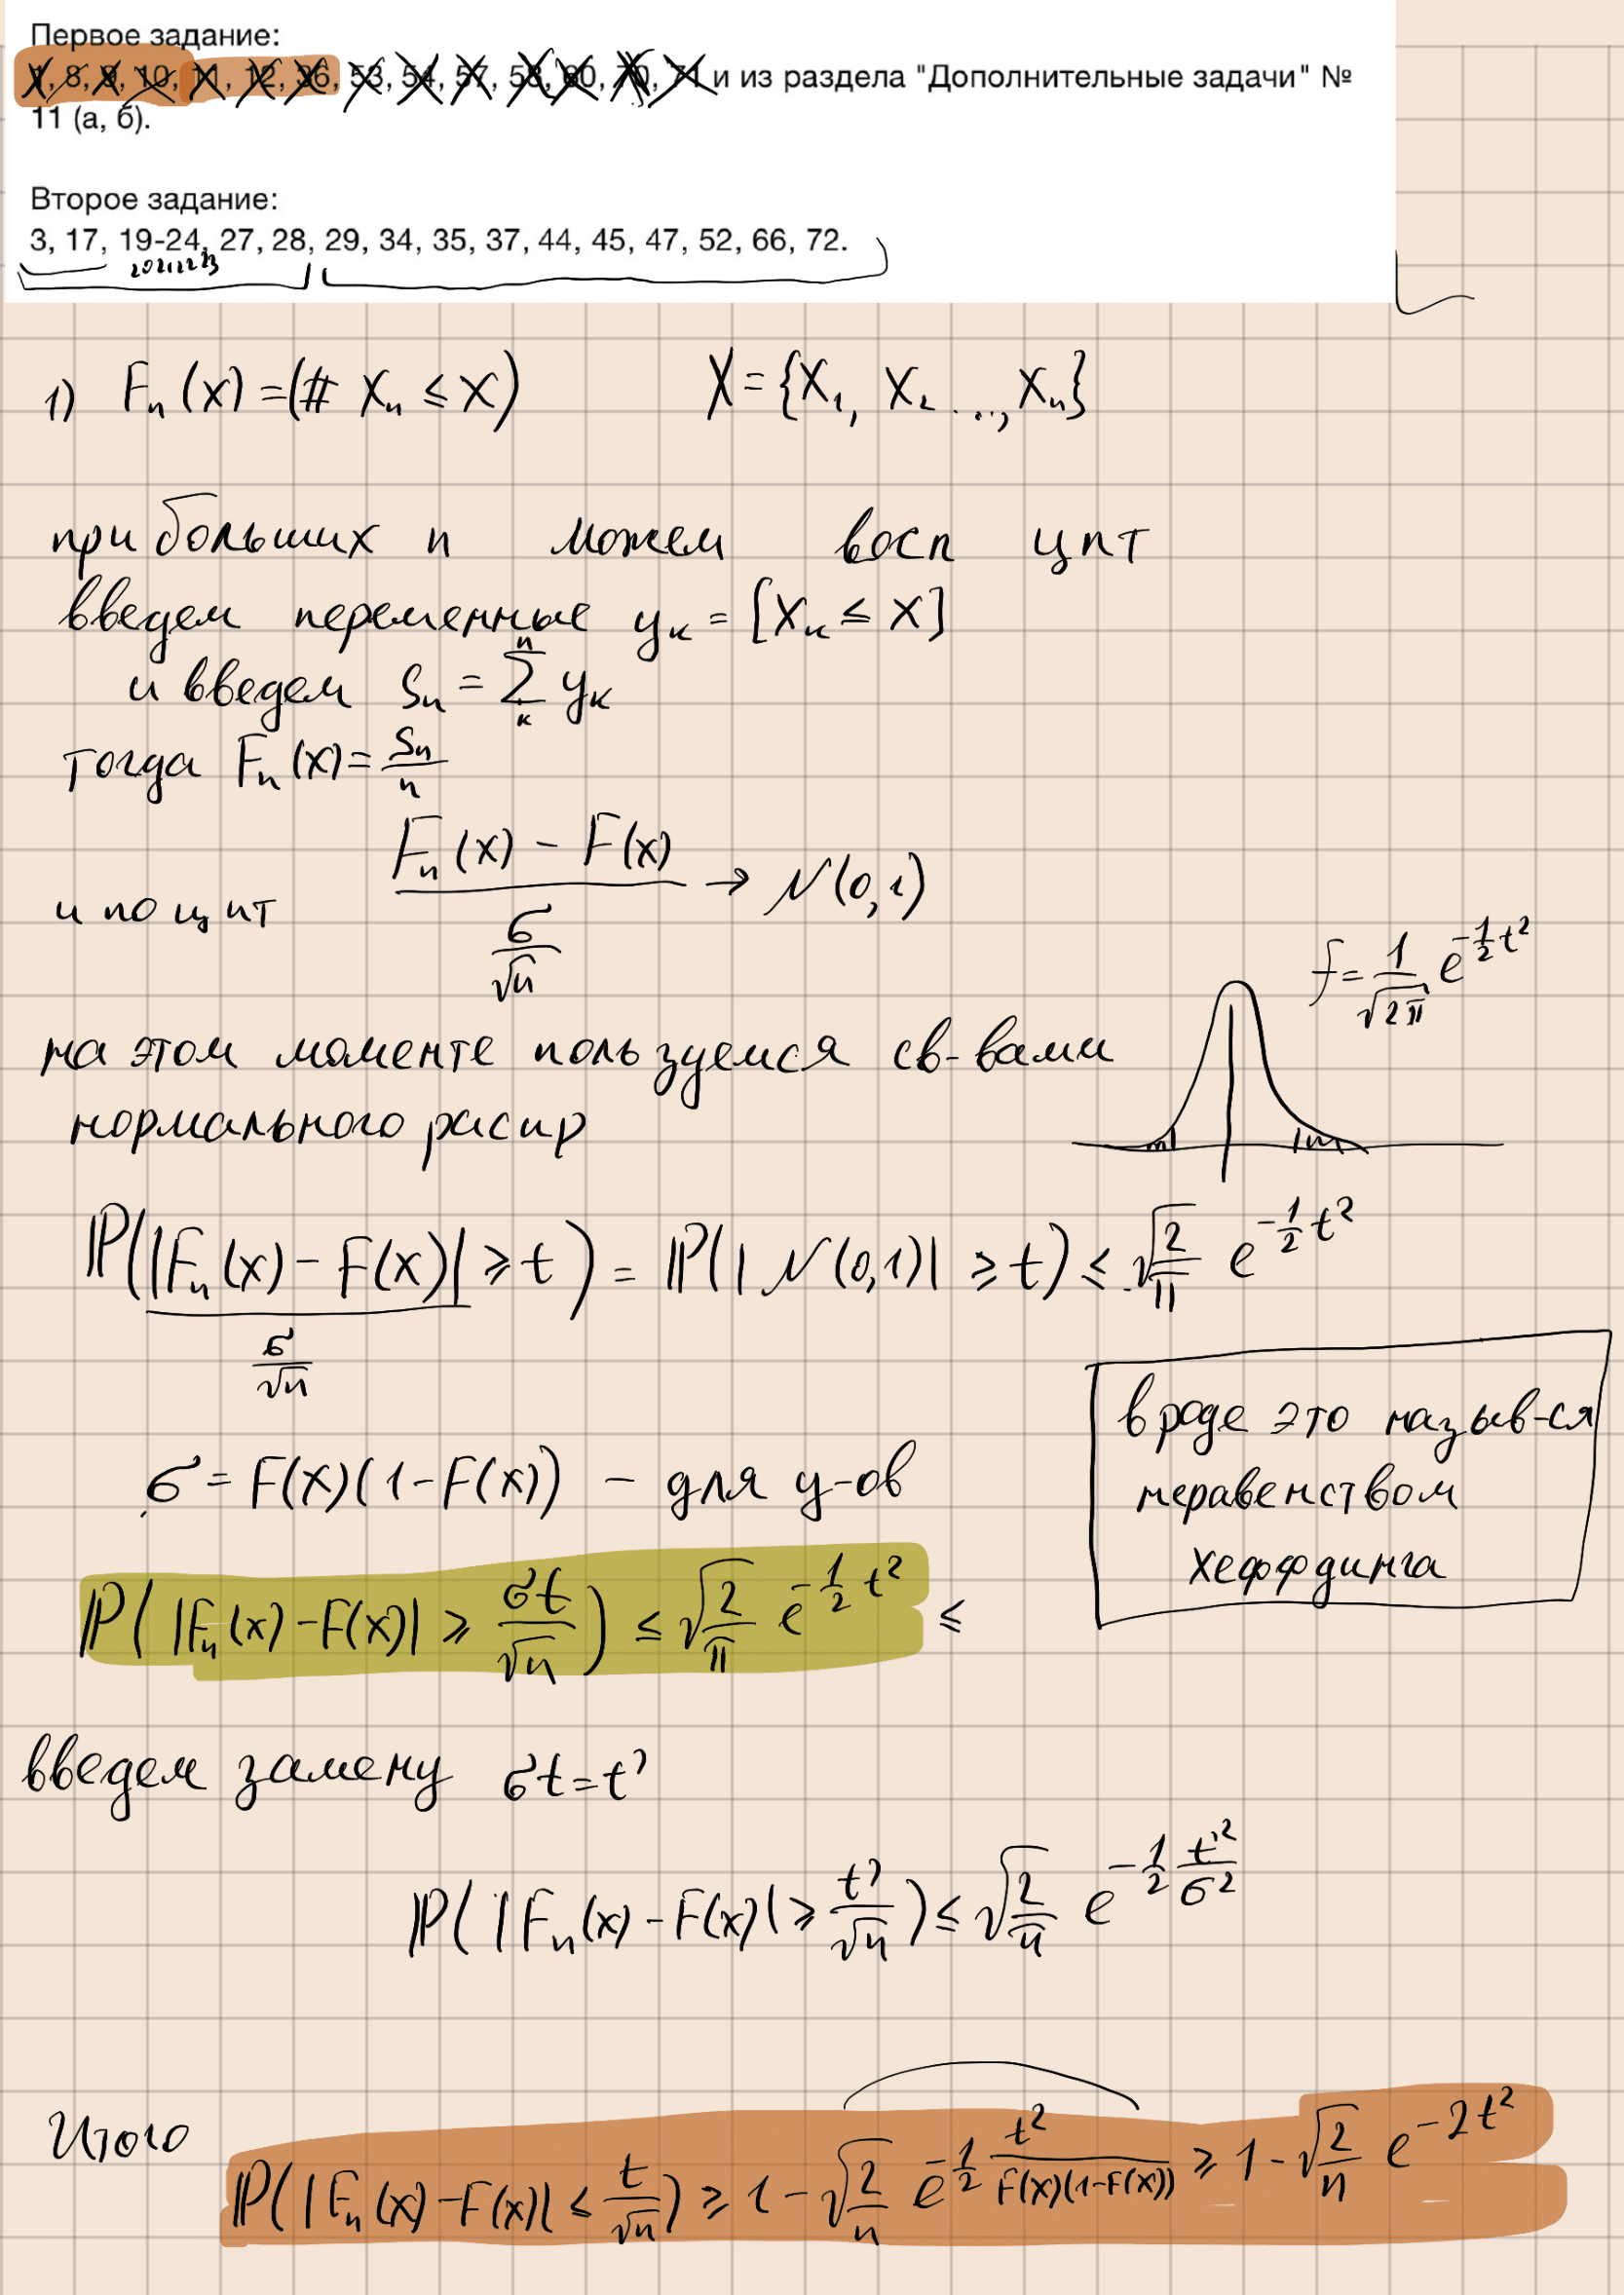 Первое задание:
1, 8, 9, 10, 11, 12, 36, 53, 54, 57, 58, 60, 70, 71 и из раздела "Дополнительные задачи" №
11 (а, б).
Второе задание:
3, 17, 19-24, 27, 28, 29, 34, 35, 37, 44, 45, 47, 52, 66, 72.
20 21 22 23
1) Fₙ(x) = (# Xₙ ≤ x) X = {X₁, X₂ ..., Xₙ}
при больших n можем восп цпт
введем переменные yₖ = [Xₖ ≤ x]
и введем Sₙ = ∑ₖⁿ yₖ
тогда Fₙ(x) = Sₙ/n
и по цпт (Fₙ(x) - F(x))/(σ/√n) → N(0,1)
f = 1/√(2π) e^(-1/2 t²)
на этом моменте пользуемся св-вами
нормального распр
P(|Fₙ(x) - F(x)|/(σ/√n) ≥ t) = P(|N(0,1)| ≥ t) ≤ √(2/π) e^(-1/2 t²)
σ = F(x)(1-F(x)) - для y-ов
вроде это назыв-ся
неравенством
хеффдинга
P(|Fₙ(x) - F(x)| ≥ σt/√n) ≤ √(2/π) e^(-1/2 t²) ≤
введем замену σt = t'
P(|Fₙ(x) - F(x)| ≥ t'/√n) ≤ √(2/π) e^(-1/2 t'²/σ²)
Итого
P(|Fₙ(x) - F(x)| ≤ t/√n) ≥ 1 - √(2/n) e^(-1/2 t²/(F(x)(1-F(x)))) ≥ 1 - √(2/n) e^(-2t²)